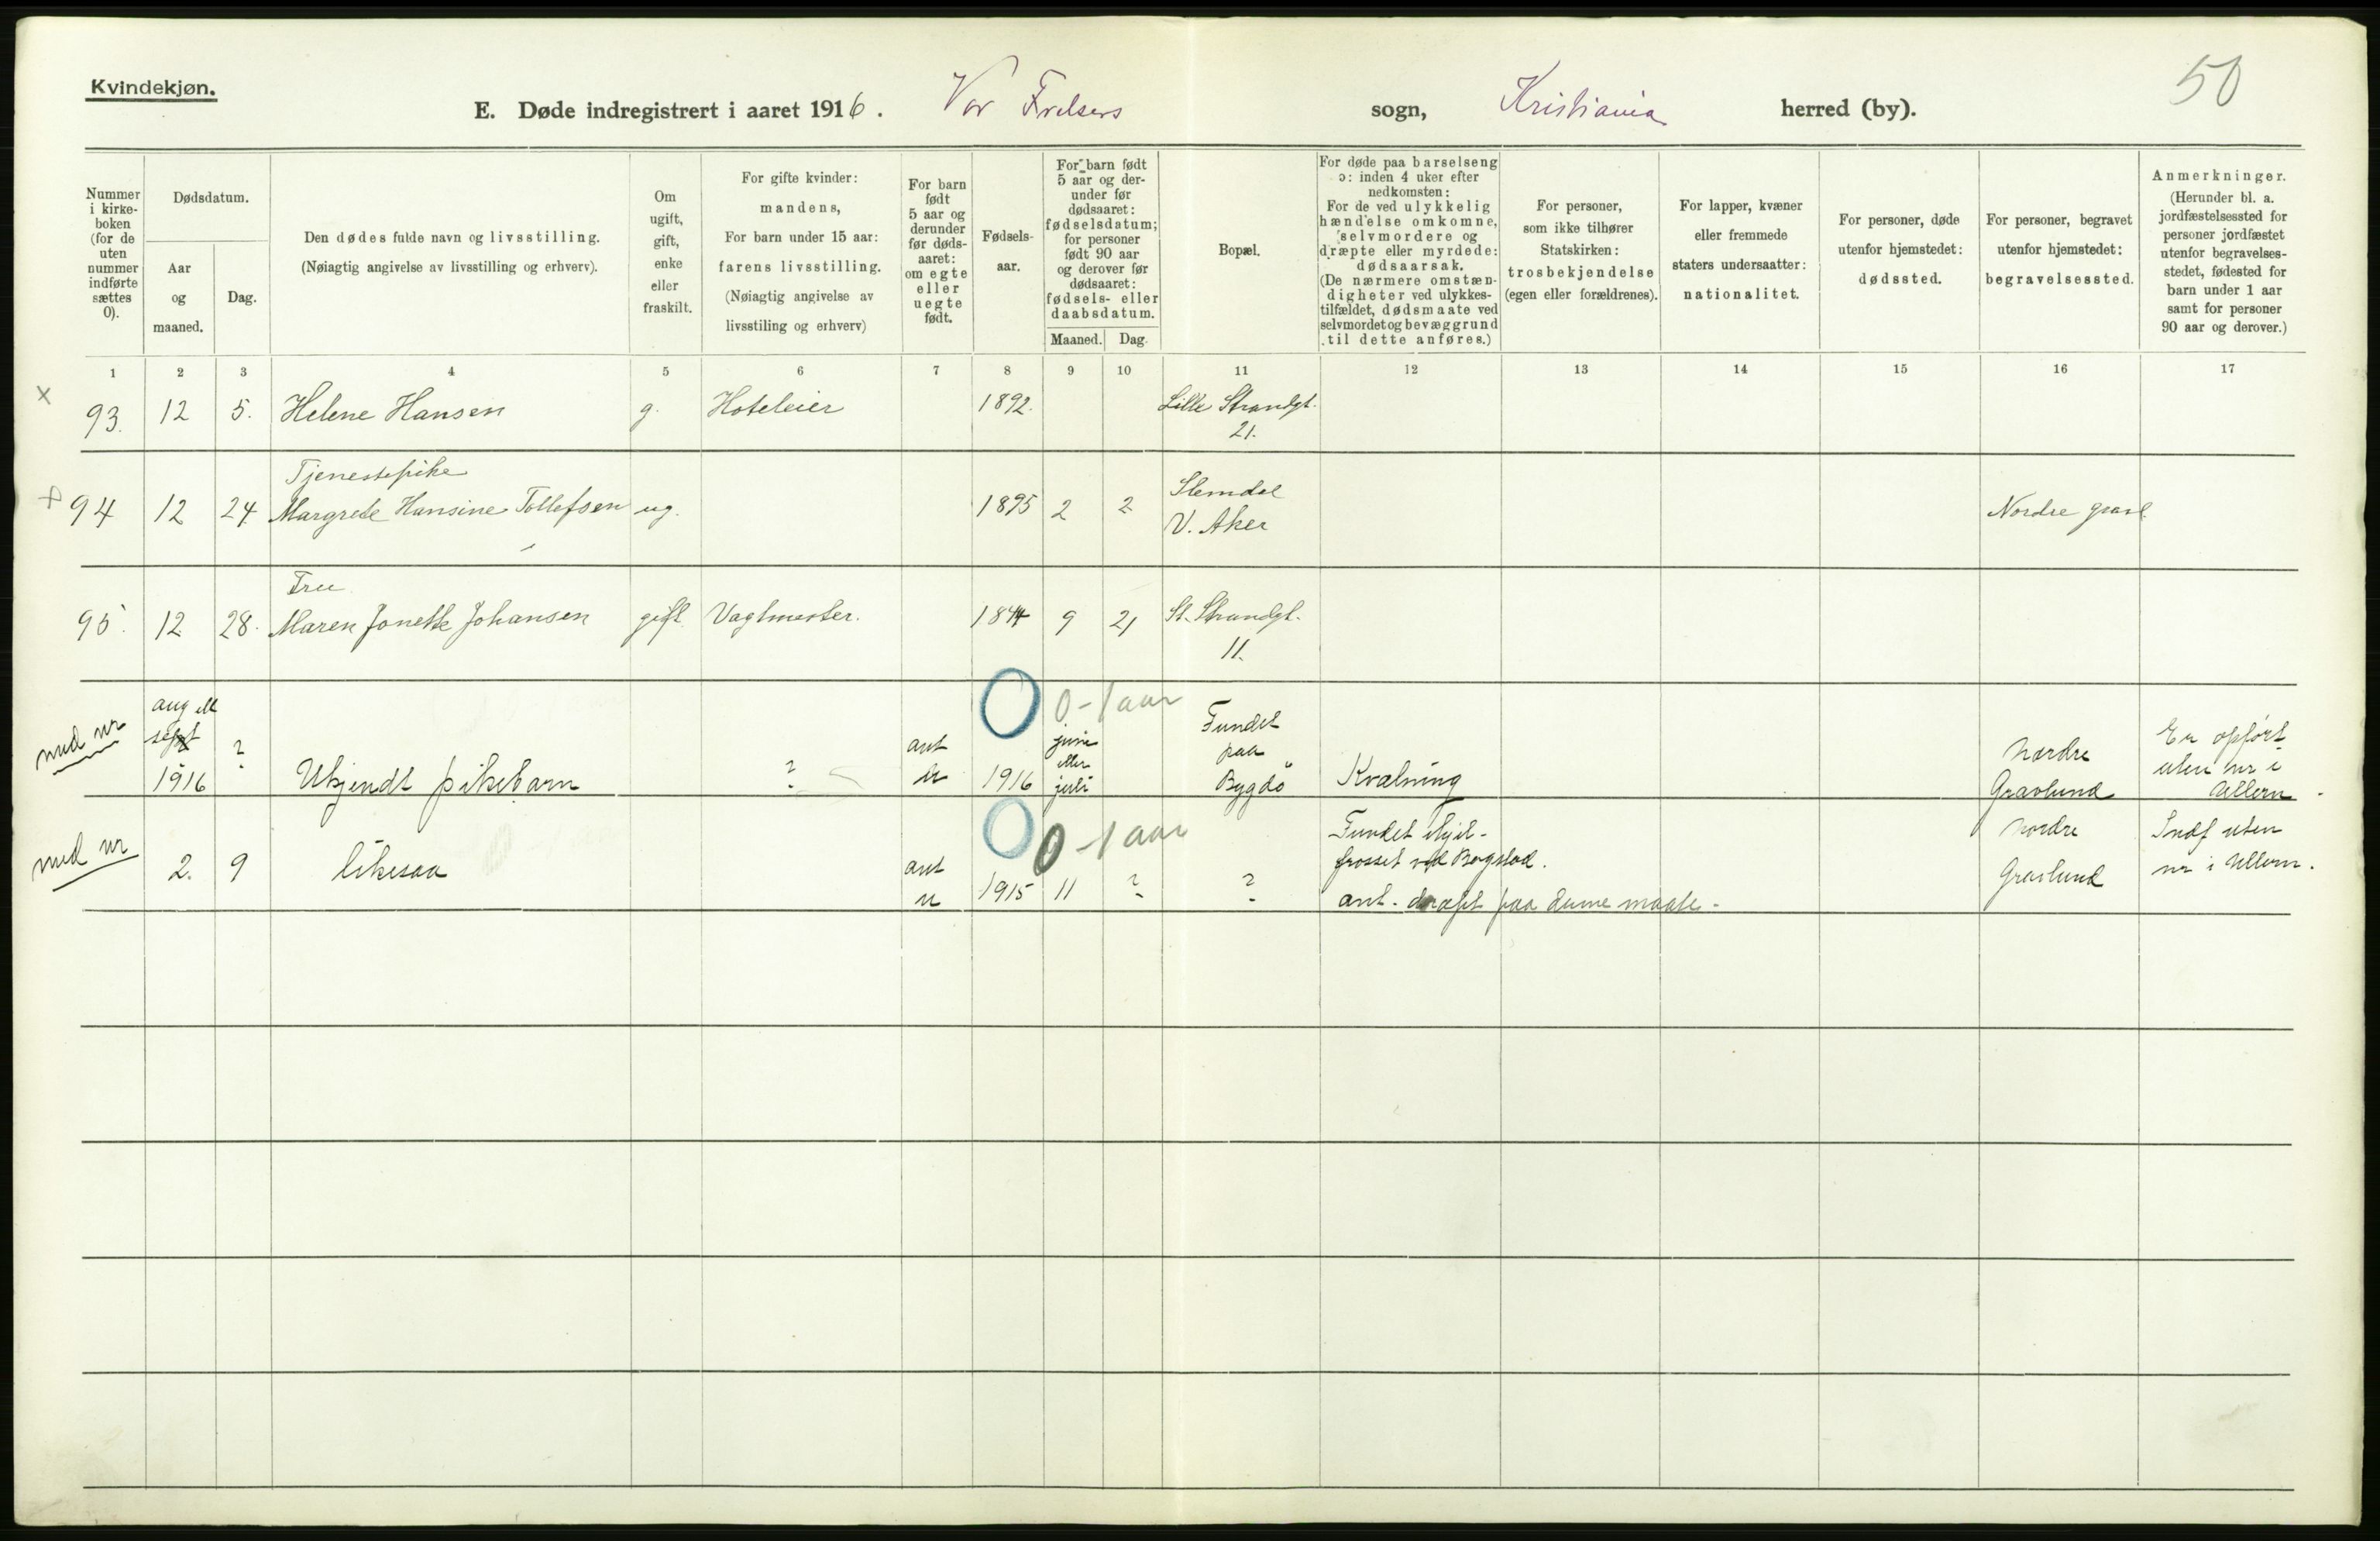 Kvindekjøn.
50
E. Døde indregistrert i aaret 1916. Vor Frelsers sogn, Kristiania herred (by).
Nummer
i kirke-
boken
(for de
uten
nummer
indførte
sættes
0).
Dødsdatum.
Aar
og
maaned.
Dag.
Den dødes fulde navn og livsstilling.
(Nøiagtig angivelse av livsstilling og erhverv).
Om
ugift,
gift,
enke
eller
fraskilt.
For gifte kvinder:
mandens,
For barn under 15 aar:
farens livsstilling.
(Nøiagtig angivelse av
livsstiling og erhverv)
For barn
født
5 aar og
derunder
før døds-
aaret:
om egte
eller
uegte
født.
Fødsels-
aar.
For barn født
5 aar og der-
under før
dødsaaret:
fødselsdatum;
for personer
født 90 aar
og derover før
dødsaaret:
fødsels- eller
daabsdatum.
Maaned. Dag.
Bopæl.
For døde paa barselseng
ɔ: inden 4 uker efter
nedkomsten:
For de ved ulykkelig
hændelse omkomne,
selvmordere og
dræpte eller myrdede:
dødsaarsak.
(De nærmere omstæn-
digheter ved ulykkes-
tilfældet, dødsmaate ved
selvmordet og bevæggrund
til dette anføres.)
For personer,
som ikke tilhører
Statskirken:
trosbekjendelse
(egen eller forældrenes).
For lapper, kvæner
eller fremmede
staters undersaatter:
nationalitet.
For personer, døde
utenfor hjemstedet:
dødssted.
For personer, begravet
utenfor hjemstedet:
begravelsessted.
Anmerkninger.
(Herunder bl. a.
jordfæstelsessted for
personer jordfæstet
utenfor begravelses-
stedet, fødested for
barn under 1 aar
samt for personer
90 aar og derover.)
1 2 3 4 5 6 7 8 9 10 11 12 13 14 15 16 17
x 93. 12 5. Helene Hansen g. Hoteleier 1892. Lille Strandgt.
21.
Tjenestepike
94 12 24 Margrete Hansine Tollefsen ug. 1895 2 2 Slemdal
V. Aker
Nordre gravl.
Frue
95. 12 28. Maren Jonette Johansen gift. Vagtmester. 1844 9 21 St. Strandgt.
11.
0 0-1 aar
aug ell
sept
1916 ?
Ukjendt pikebarn ?
ant
u 1916
juni
eller
juli
Fundet
paa
Bygdö
Kvælning
Nordre
Gravlund
Er opført
uten nr i
Ullern
0 0-1 aar
2. 9 likesaa
ant
u 1915 11 ? ?
Fundet ihjel-
frosset ved Bogstad.
ant. dræpt paa denne maate.
Nordre
Gravlund
Indf uten
nr i Ullern.